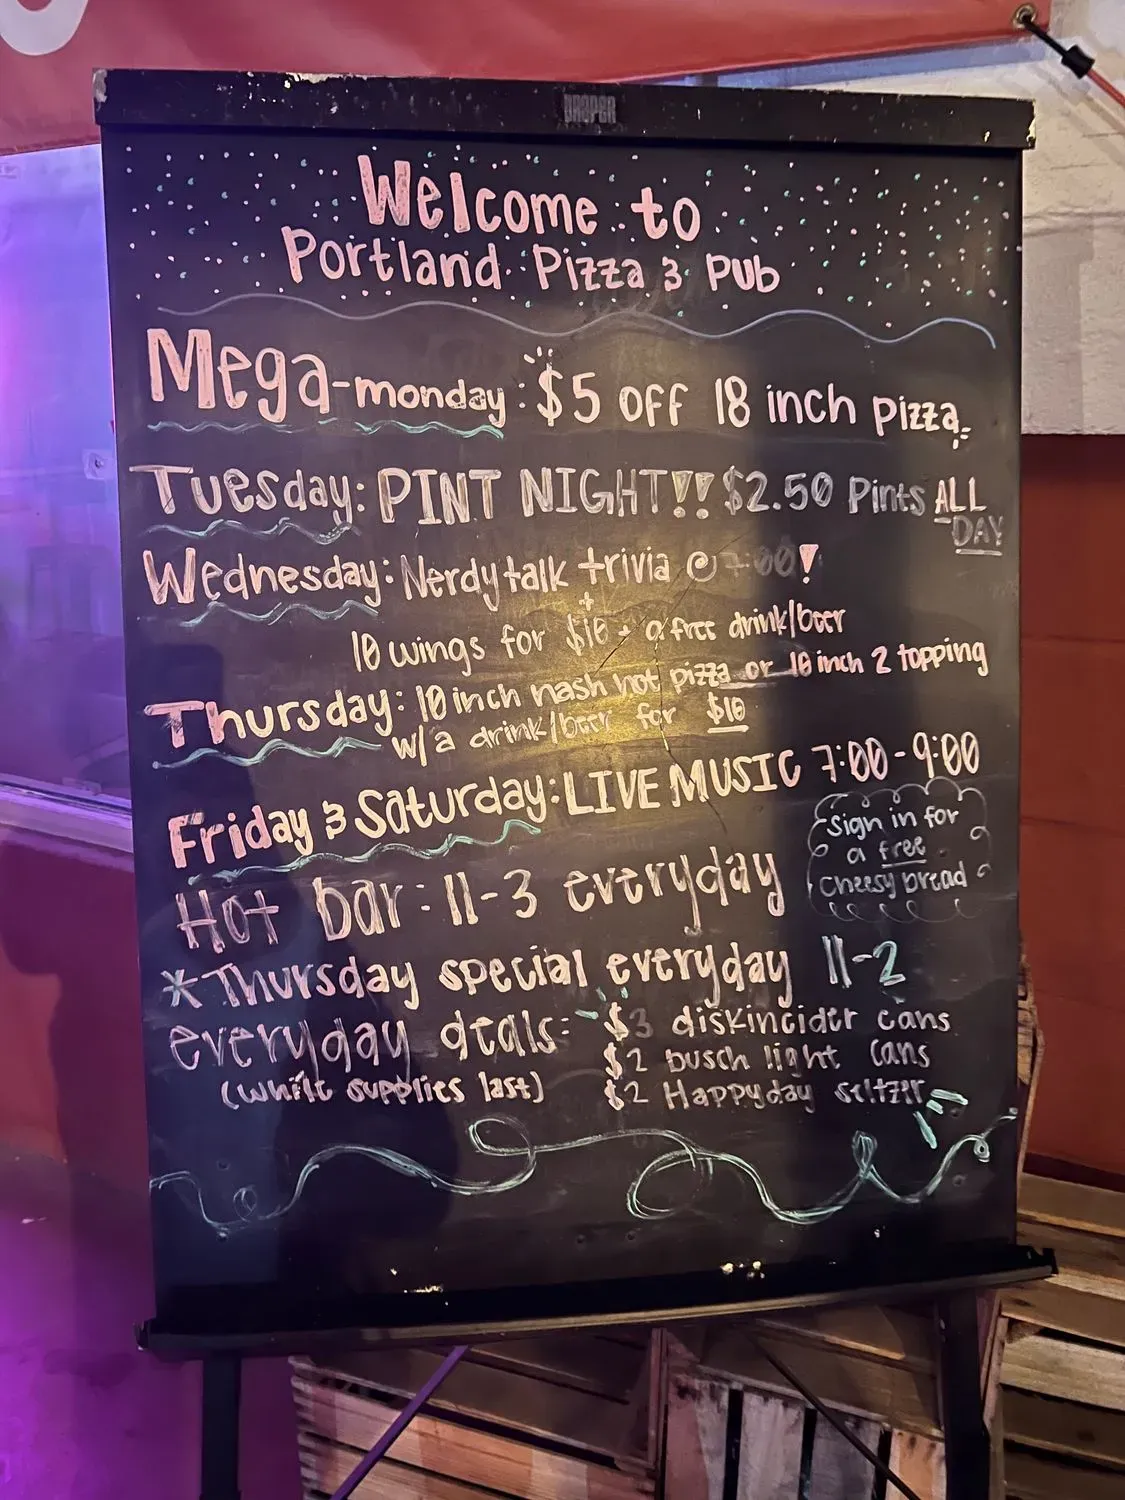 DRAPER
Welcome to
Portland Pizza & Pub
Mega-monday: $5 OFF 18 inch pizza
Tuesday: PINT NIGHT!! $2.50 Pints ALL
DAY
Wednesday: Nerdy talk trivia @ 7:00!
+
10 wings for $10 + a free drink/beer
Thursday: 10 inch nash hot pizza or 10 inch 2 topping
w/a drink/beer for $10
Friday & Saturday: LIVE MUSIC 7:00-9:00
Sign in for
a free
cheesy bread
Hot bar: 11-3 everyday
*Thursday special everyday 11-2
everyday deals:
(while supplies last)
$3 diskincider cans
$2 busch light cans
$2 Happyday seltzer